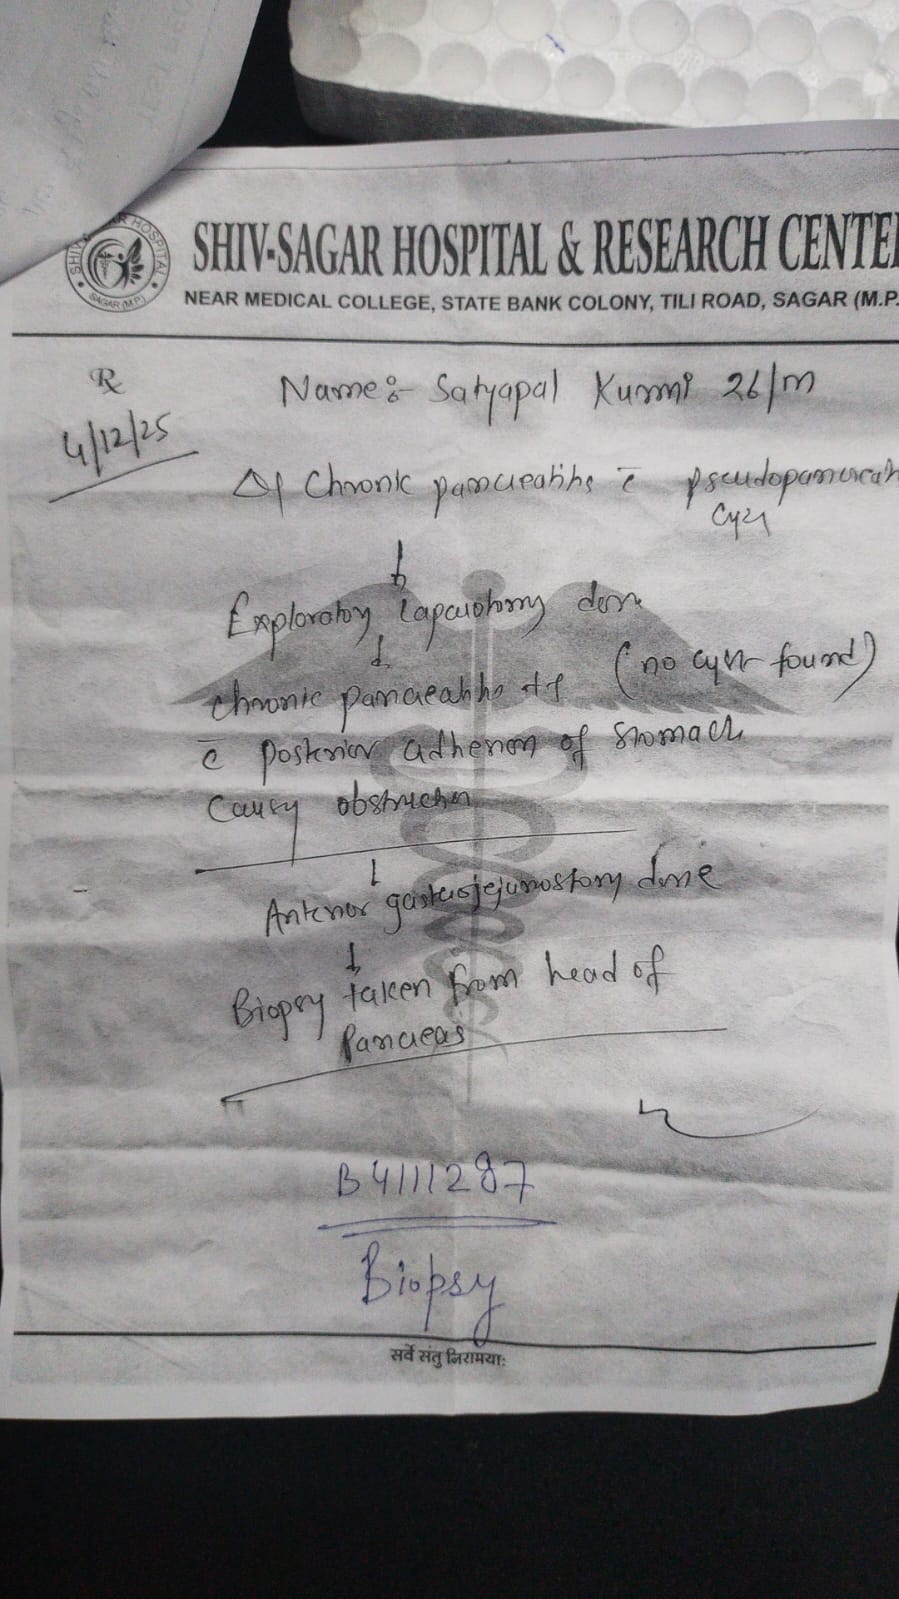 SHIV-SAGAR HOSPITAL & RESEARCH CENTE
NEAR MEDICAL COLLEGE, STATE BANK COLONY, TILI ROAD, SAGAR (M.P.
SAGAR (M.P.)
Name:- Satyapal Kurmi 26/m
4/12/25
Chronic pancreatitis c̄ pseudopancreati
cyst
↓
Exploratory laparotomy done
↓
(no cyst found)
chronic pancreatitis
c̄ posterior adhesion of stomach
causing obstruction
↓
Anterior gastrojejunostomy done
↓
Biopsy taken from head of
Pancreas
B4111287
Biopsy
सर्वे संतु निरामया: